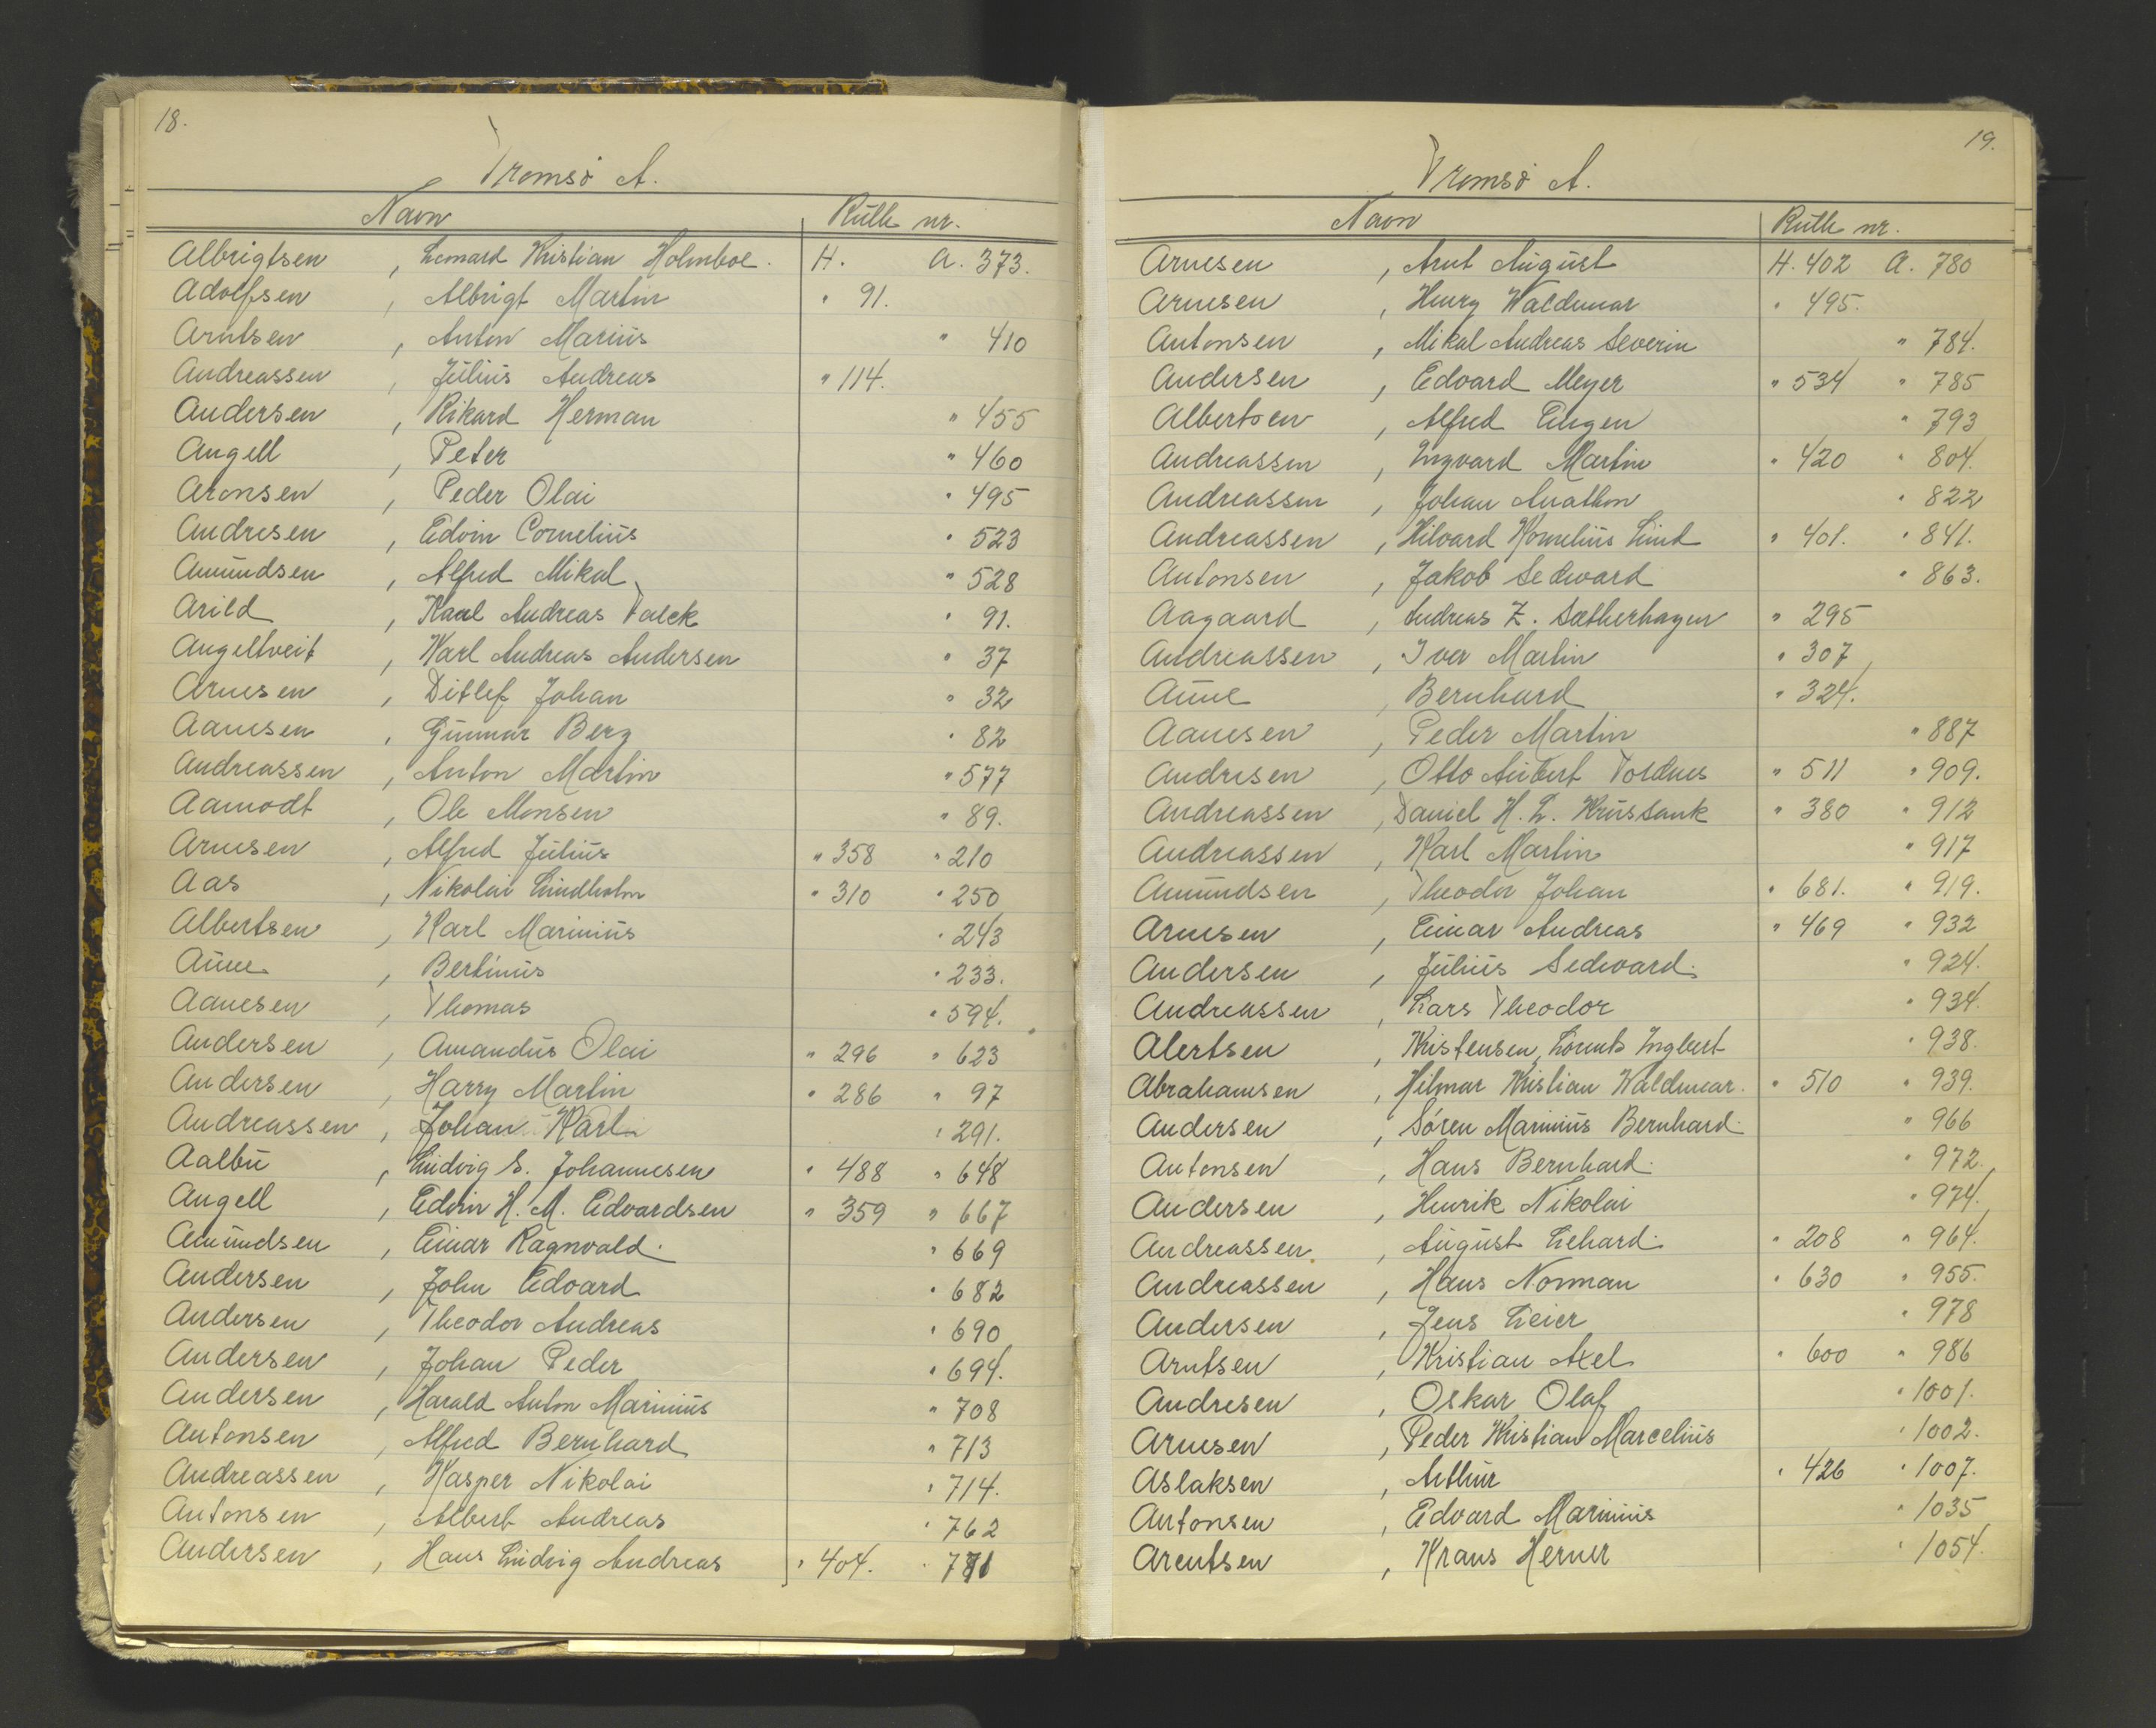 18.
Tromsø A.
Navn Rulle nr.
Albrigtsen , Leonard Kristian Holmboe. H. A. 373.
Adolfsen , Albrigt Martin " 91.
Arntsen , Anton Marius " 410
Andreassen , Julius Andreas " 114.
Andersen , Rikard Herman " 455
Angell , Peter " 460
Aronsen , Peder Olai " 495
Andresen , Edvin Cornelius " 523
Amundsen , Alfred Mikal " 528
Arild , Karl Andreas Falck " 91.
Angeltveit , Karl Andreas Andersen " 37
Arnesen , Ditlef Johan " 32
Aanesen , Gunnar Berg " 82
Andreassen , Anton Martin " 577
Aamodt , Ole Monsen " 89.
Arnesen , Alfred Julius " 358 " 210
Aas , Nikolai Lindholm " 310 " 250
Albertsen , Karl Marinius " 243
Aune , Bertinus " 233.
Aanesen , Thomas " 594.
Andersen , Amandus Olai " 296 " 623
Andersen , Harry Martin " 286 " 97
Andreassen , Johan Karl " 291.
Aalbu , Ludvig S. Johannesen " 488 " 648
Angell , Edvin H. M. Edvardsen " 359 " 667
Amundsen , Einar Ragnvald. " 669
Andersen , John Edvard " 682
Andersen , Theodor Andreas " 690
Andersen , Johan Peder " 694.
Andersen , Harald Anton Marinius " 708
Antonsen , Alfred Bernhard " 713
Andreassen , Kasper Nikolai " 714.
Antonsen , Albert Andreas " 762
Andersen , Hans Ludvig Andreas " 404. " 771
19.
Tromsø A.
Navn Rulle nr.
Arnesen , Arnt August H. 402 A. 780
Arnesen , Henry Waldemar " 495.
Antonsen , Mikal Andreas Severin " 784.
Andersen , Edvard Meyer " 534 " 785
Albertsen , Alfred Eugen " 793
Andreassen , Ingvard Martin " 420 " 804.
Andreassen , Johan Anathon " 822
Andreassen , Hilvard Kornelius Lind " 401. " 841.
Antonsen , Jakob Sedward " 863.
Aagaard , Andreas Z. Sætherhagen " 295
Andreassen , Iver Martin " 307
Aune , Bernhard " 324.
Aanesen , Peder Martin " 887
Andresen , Otto Aubert Toldnes " 511 " 909.
Andreassen , Daniel H. L. " 380 " 912
Andreassen , Karl Martin " 917
Amundsen , Theodor Johan " 681. " 919.
Arnesen , Einar Andreas " 469 " 932
Andersen , Julius Sedward. " 924.
Andreassen , Lars Theodor " 934.
Alertsen , Kristensen, Lorents Ingbert " 938.
Abrahamsen , Hilmar Kristian Waldemar. " 510 " 939.
Andersen , Søren Marinius Bernhard. " 966
Antonsen , Hans Bernhard. " 972.
Andersen , Henrik Nikolai " 974.
Andreassen , August Lehard. " 208 " 964.
Andreassen , Hans Norman " 630 " 955.
Andersen , Jens Leier " 978
Arntsen , Kristian Axel " 600 " 986
Andresen , Oskar Olaf " 1001.
Arnesen , Peder Kristian Marcelius " 1002.
Aslaksen , Arthur " 426 " 1007.
Antonsen , Edvard Marinius " 1035
Arentsen , Krans Herner " 1054.